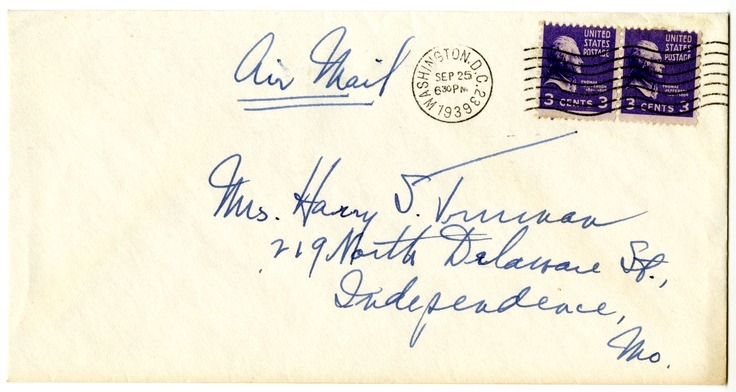 Air Mail
WASHINGTON, D.C. 23
SEP 25
630 PM
1939
UNITED
STATES
POSTAGE
THOMAS
JEFFERSON
3 CENTS 3
UNITED
STATES
POSTAGE
THOMAS
JEFFERSON
3 CENTS 3
Mrs. Harry S. Truman
219 North Delaware St.,
Independence,
Mo.